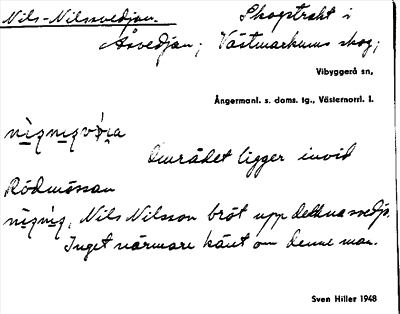 Nils-Nilssvedjan. Skogstrakt i
Åsvedjan; Västmarkums skog;
Vibyggerå sn,
Ångermanl. s. doms. tg., Västernorrl. l.
Området ligger invid
Rödmossan
Nils Nilsson bröt upp denna svedja.
Inget närmare känt om denne man.
Sven Hiller 1948